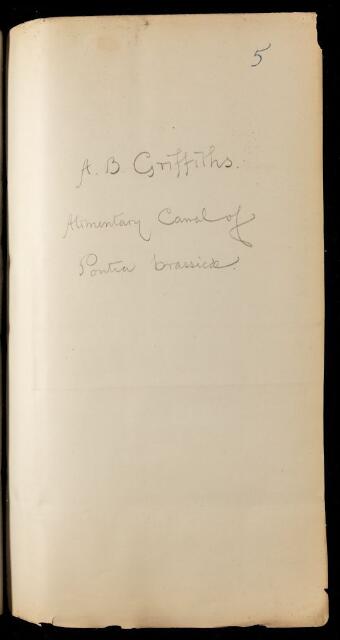 5
A. B Griffiths.
Alimentary Canal of
Pontia brassicæ.